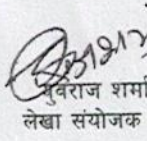 युवराज शर्मा
लेखा संयोजक